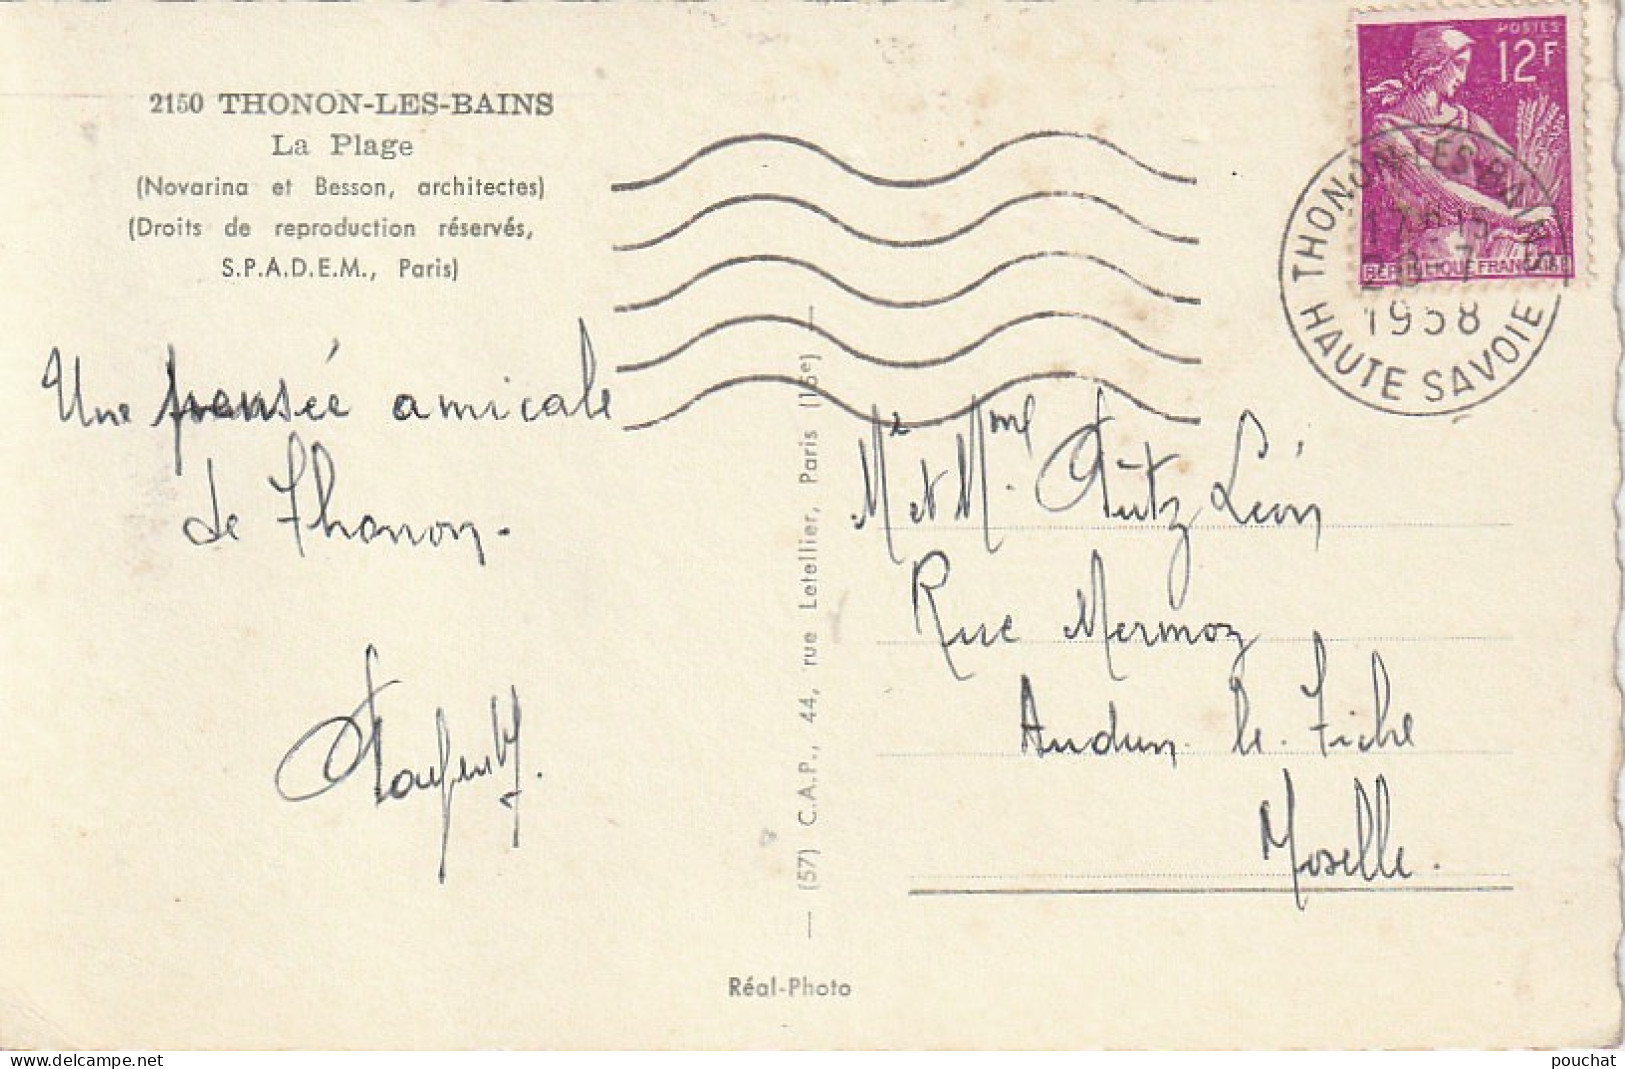 2150 THONON-LES-BAINS
La Plage
(Novarina et Besson, architectes)
(Droits de reproduction réservés,
S.P.A.D.E.M., Paris)
Une pensée amicale
de Thonon.
POSTES
12F
REPUBLIQUE FRANCAISE
THONON-LES-BAINS
17H15
-7
1958
HAUTE SAVOIE
(57) C.A.P., 44, rue Letellier, Paris (15e)
Mr et Mme Léon
Rue Mermoz
Audun-le-Tiche
Moselle.
Réal-Photo
delcampe.net
pouchat